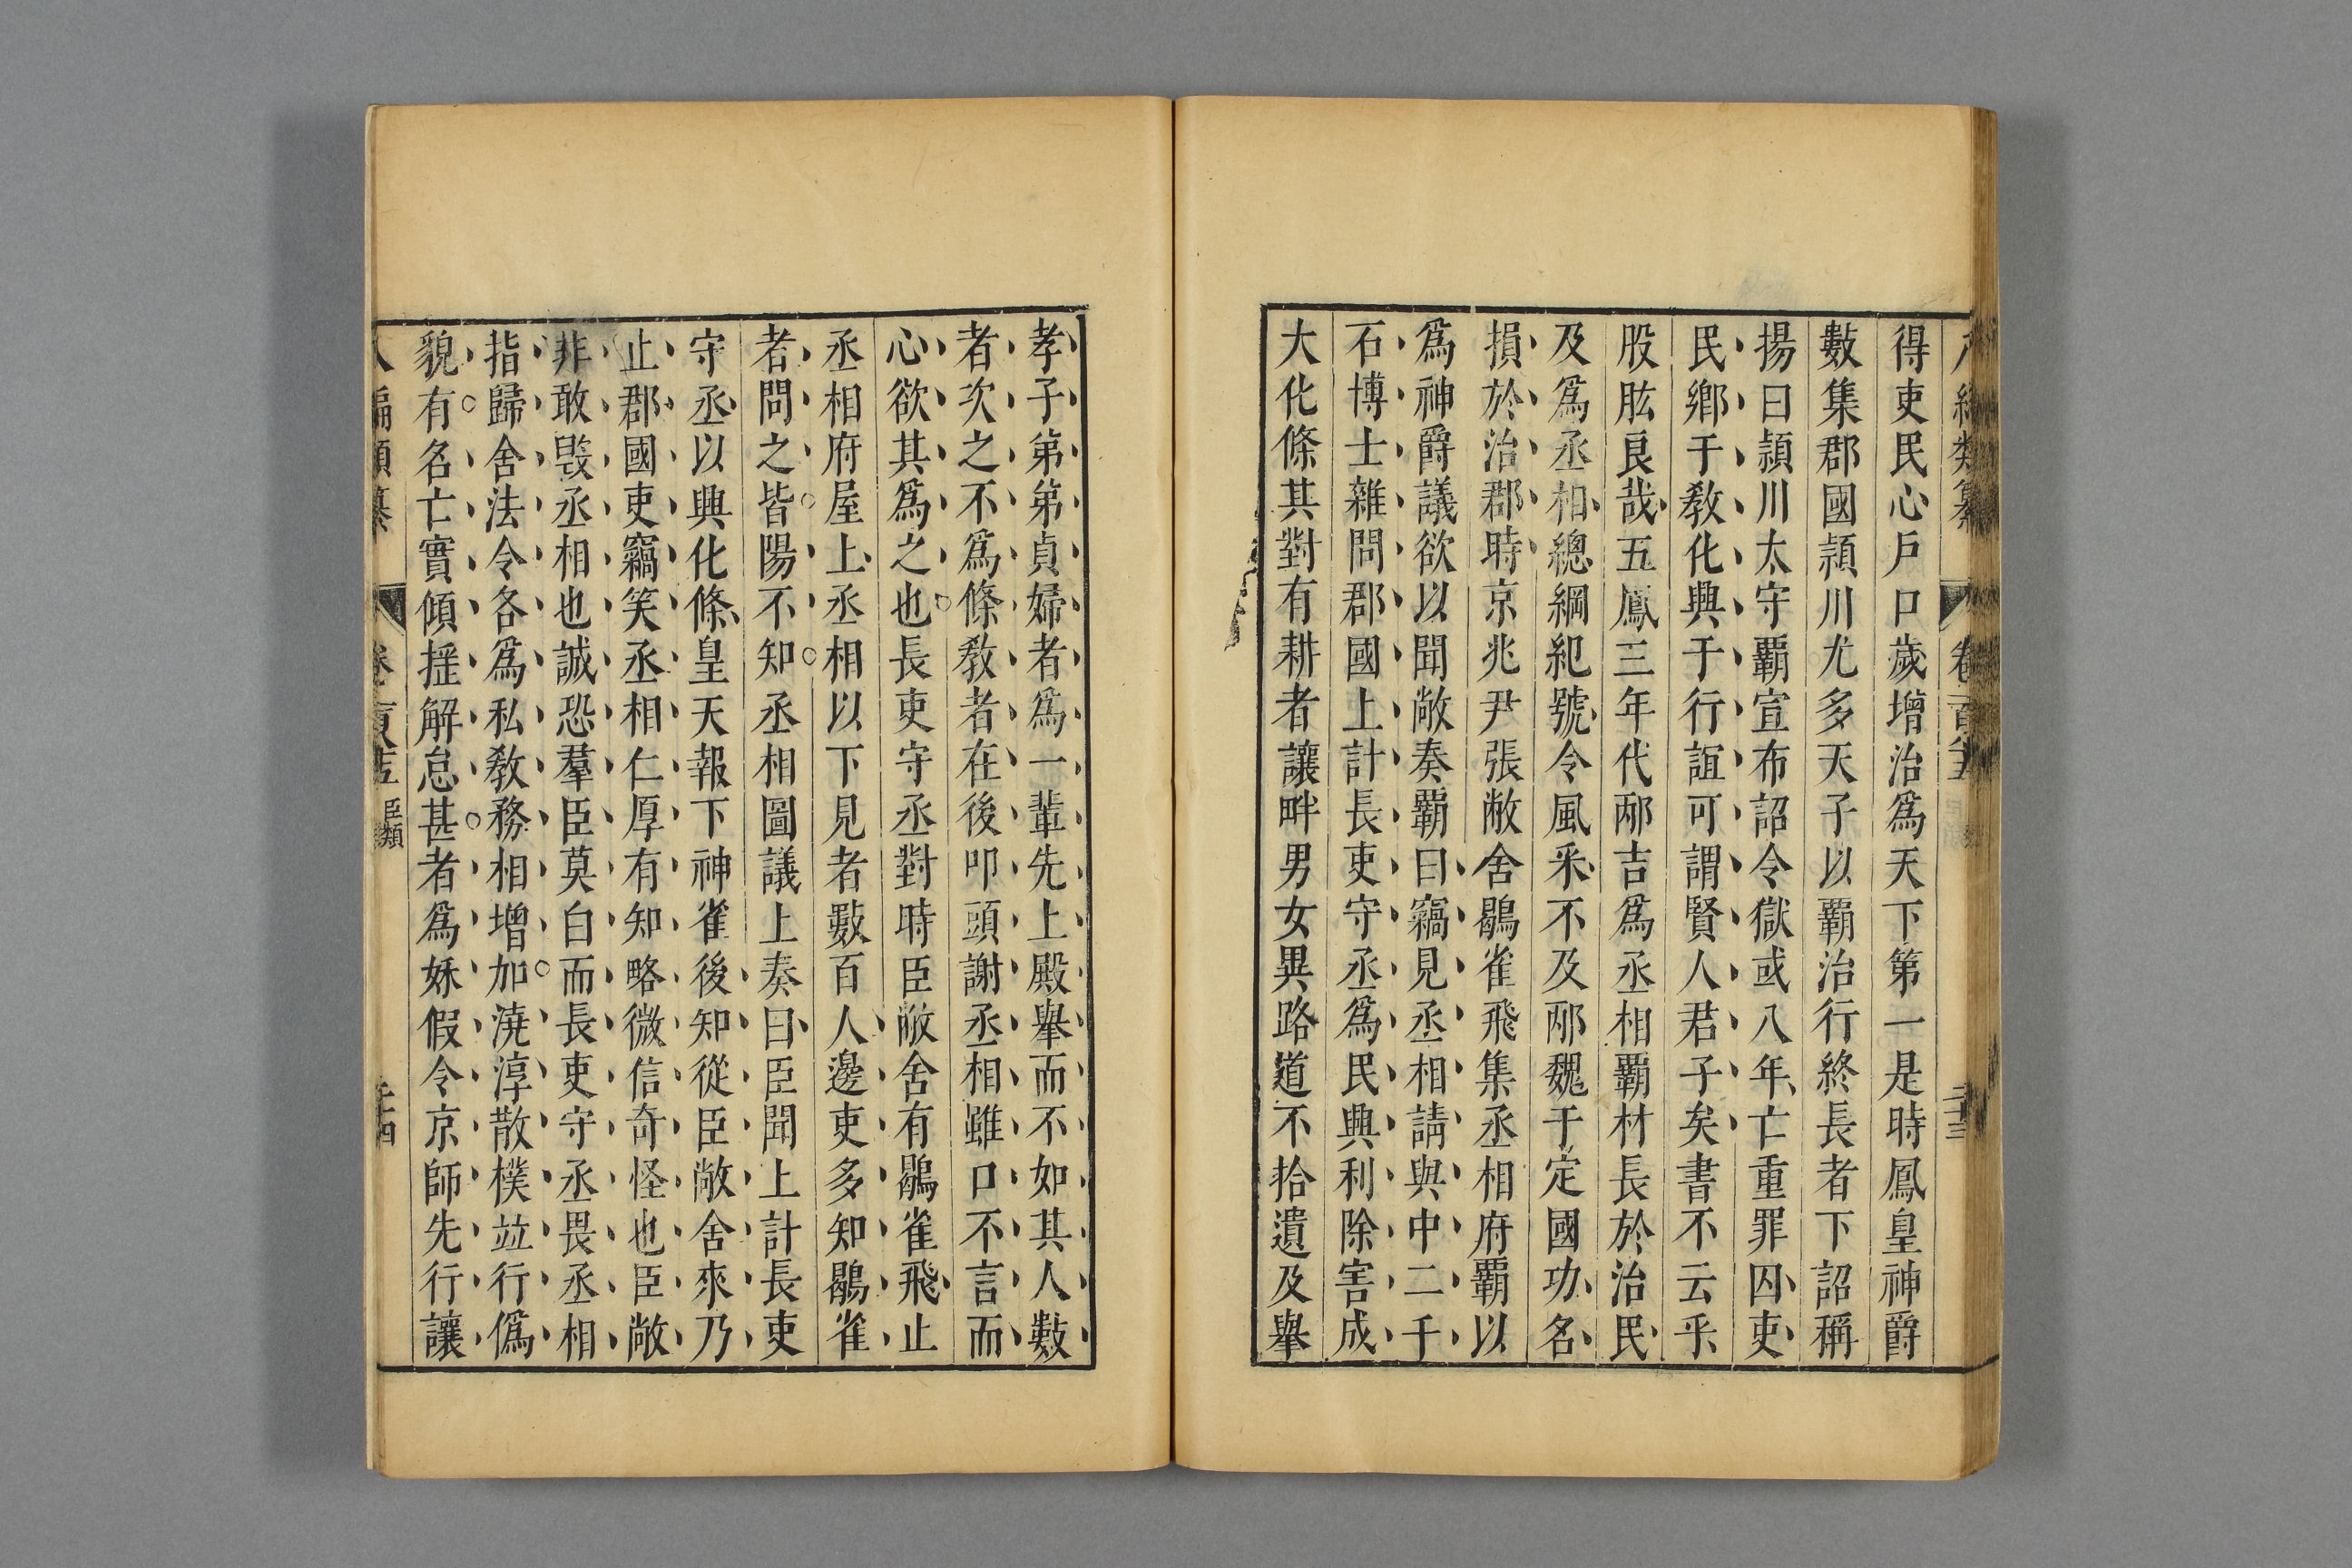 得吏民心戶口歲增治爲天下第一是時鳳皇神爵
數集郡國潁川尤多天子以霸治行終長者下詔稱
揚曰潁川太守霸宣布詔令獄或八年亡重罪囚吏
民鄉于敎化興于行誼可謂賢人君子矣書不云乎
股肱良哉五鳳三年代邴吉爲丞相霸材長於治民
及爲丞相總綱紀號令風采不及邴魏于定國功名
損於治郡時京兆尹張敞舍鶡雀飛集丞相府霸以
爲神爵議欲以聞敞奏霸曰竊見丞相請與中二千
石博士雜問郡國上計長吏守丞爲民興利除害成
大化條其對有耕者讓畔男女異路道不拾遺及舉
孝子弟弟貞婦者爲一輩先上殿舉而不如其人數
者次之不爲條敎者在後叩頭謝丞相雖口不言而
心欲其爲之也長吏守丞對時臣敞舍有鶡雀飛止
丞相府屋上丞相以下見者數百人邊吏多知鶡雀
者問之皆陽不知丞相圖議上奏曰臣聞上計長吏
守丞以興化條皇天報下神雀後知從臣敞舍來乃
止郡國吏竊笑丞相仁厚有知略微信奇怪也臣敞
非敢毀丞相也誠恐羣臣莫白而長吏守丞畏丞相
指歸舍法令各爲私敎務相增加澆淳散樸竝行僞
貌有名亡實傾搖解怠甚者爲妖假令京師先行讓
編類纂 卷一百八十五 臣類 二十四